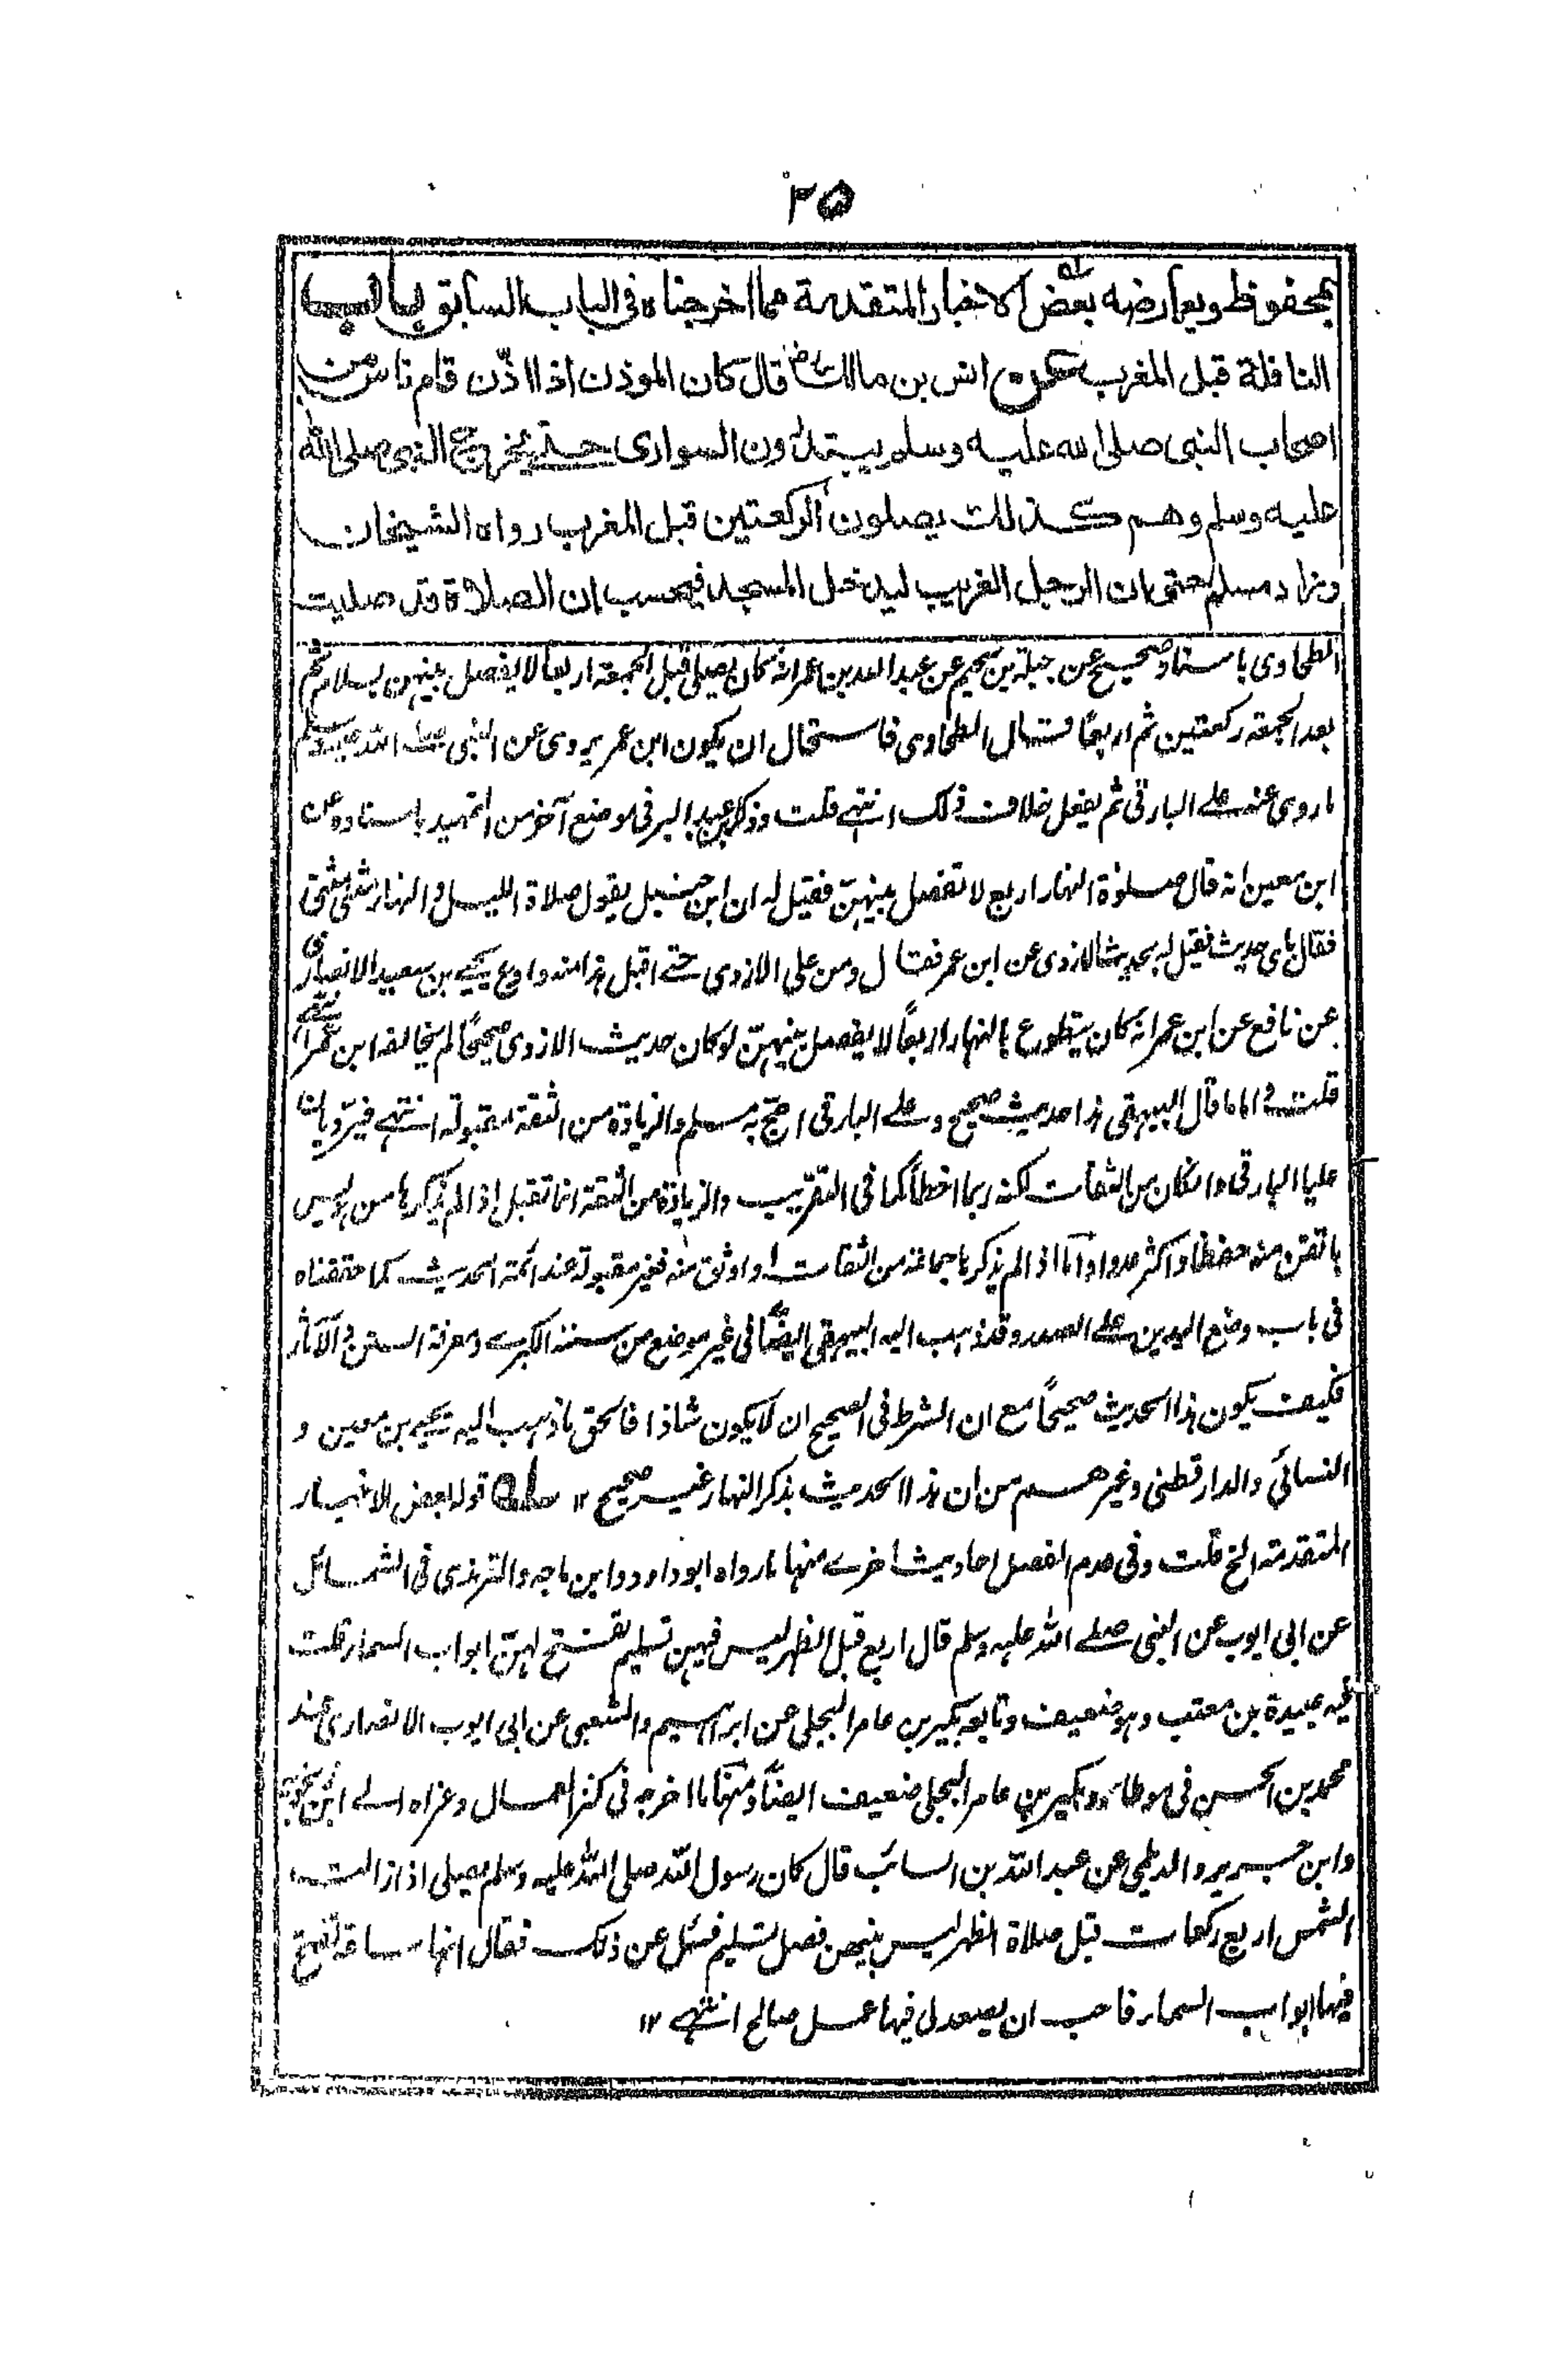 ٢٥
بمحفوظ ويعارضه بعض الاخبار المتقدمة مما اخرجناه فى الباب السابق باب
النافلة قبل المغرب عن انس بن مالك رض قال كان الموذن اذا اذّن قام ناس من
اصحاب النبى صلى الله عليه وسلم يبتدرون السوارى حتى يخرج النبى صلى الله
عليه وسلم وهم كذلك يصلون الركعتين قبل المغرب رواه الشيخان
وزاد مسلم حتى ان الرجل الغريب ليدخل المسجد فيحسب ان الصلاة قد صليت
الطحاوى باسناد صحيح عن جبلة بن سحيم عن عبد الله بن عمر انه كان يصلى قبل الجمعة اربعا لا يفصل بينهن بسلام ثم
بعد الجمعة ركعتين ثم اربعًا فقال الطحاوى فاستحال ان يكون ابن عمر يروى عن النبى صلے الله عليه وسلم
ما روى عنه علے البارقى ثم يفعل خلاف ذلك انتهے قلت وذكر ابن عبد البر فى موضع آخر من التمهيد باسناده عن
ابن معين انه قال صلوٰة النهار اربع لا تفصل بينهنّ فقيل له ان ابن حنبل يقول صلاة الليل والنهار مثنى مثنى
فقال باى حديث فقيل له بحديث الازدى عن ابن عمر فقال ومن على الازدى حتے اقبل هذا منه وادع يحيے بن سعيد الانصارى
عن نافع عن ابن عمر انه كان يتطوع بالنهار اربعًا لا يفصل بينهنّ لو كان حديث الازدى صحيحًا لم يخالفه ابن عمر انتهے
قلت واما ما قال البيهقى هذا حديث صحيح وعلے البارقى احتج به مسلم والزيادة من الثقة مقبولة انتهے فيردّ بان
عليا البارقى وان كان من الثقات لكنه ربما اخطأ كما فى التقريب والزيادة من الثقة انما تقبل اذا لم يذكرها من ليس
باتقن منه حفظا واكثر عددا واما اذا لم يذكرها جماعة من الثقات او اوثق منه فغير مقبولة عند ائمة الحديث كما حققناه
فى باب وضع اليدين علے الصدر وقد ذهب اليه البيهقى ايضًا فى غير موضع من سننه الكبرے ومعرفة السنن والآثار
فكيف يكون هذا الحديث صحيحًا مع ان الشرط فى الصحيح ان لا يكون شاذا فالحق ما ذهب اليه يحيے بن معين و
النسائى والدارقطنى وغيرهم من ان هذا الحديث بذكر النهار غير صحيح ١٢ قوله بعض الاخبار
المتقدمة الخ قلت وفى عدم الفصل احاديث اخرے منها ما رواه ابوداود وابن ماجه والترمذى فى الشمائل
عن ابى ايوب عن النبى صلے الله عليه وسلم قال اربع قبل الظهر ليس فيهن تسليم تفتح لهنّ ابواب السماء قلت
فيه عبيدة بن معتب وهو ضعيف وتابعه بكير بن عامر البجلى عن ابراهيم والشعبى عن ابى ايوب الانصارى عند
محمد بن الحسن فى موطاه وبكير بن عامر البجلى ضعيف ايضًا ومنها ما اخرجه فى كنز العمال وعزاه الے ابن زنجويه
وابن جرير والديلمى عن عبد الله بن السائب قال كان رسول الله صلى الله عليه وسلم يصلى اذا زالت
الشمس اربع ركعات قبل صلاة الظهر ليس بينهن فصل بتسليم فسئل عن ذلك فقال انها ساعة تفتح
فيها ابواب السماء فاحب ان يصعد لى فيها عمل صالح انتهے ١٢